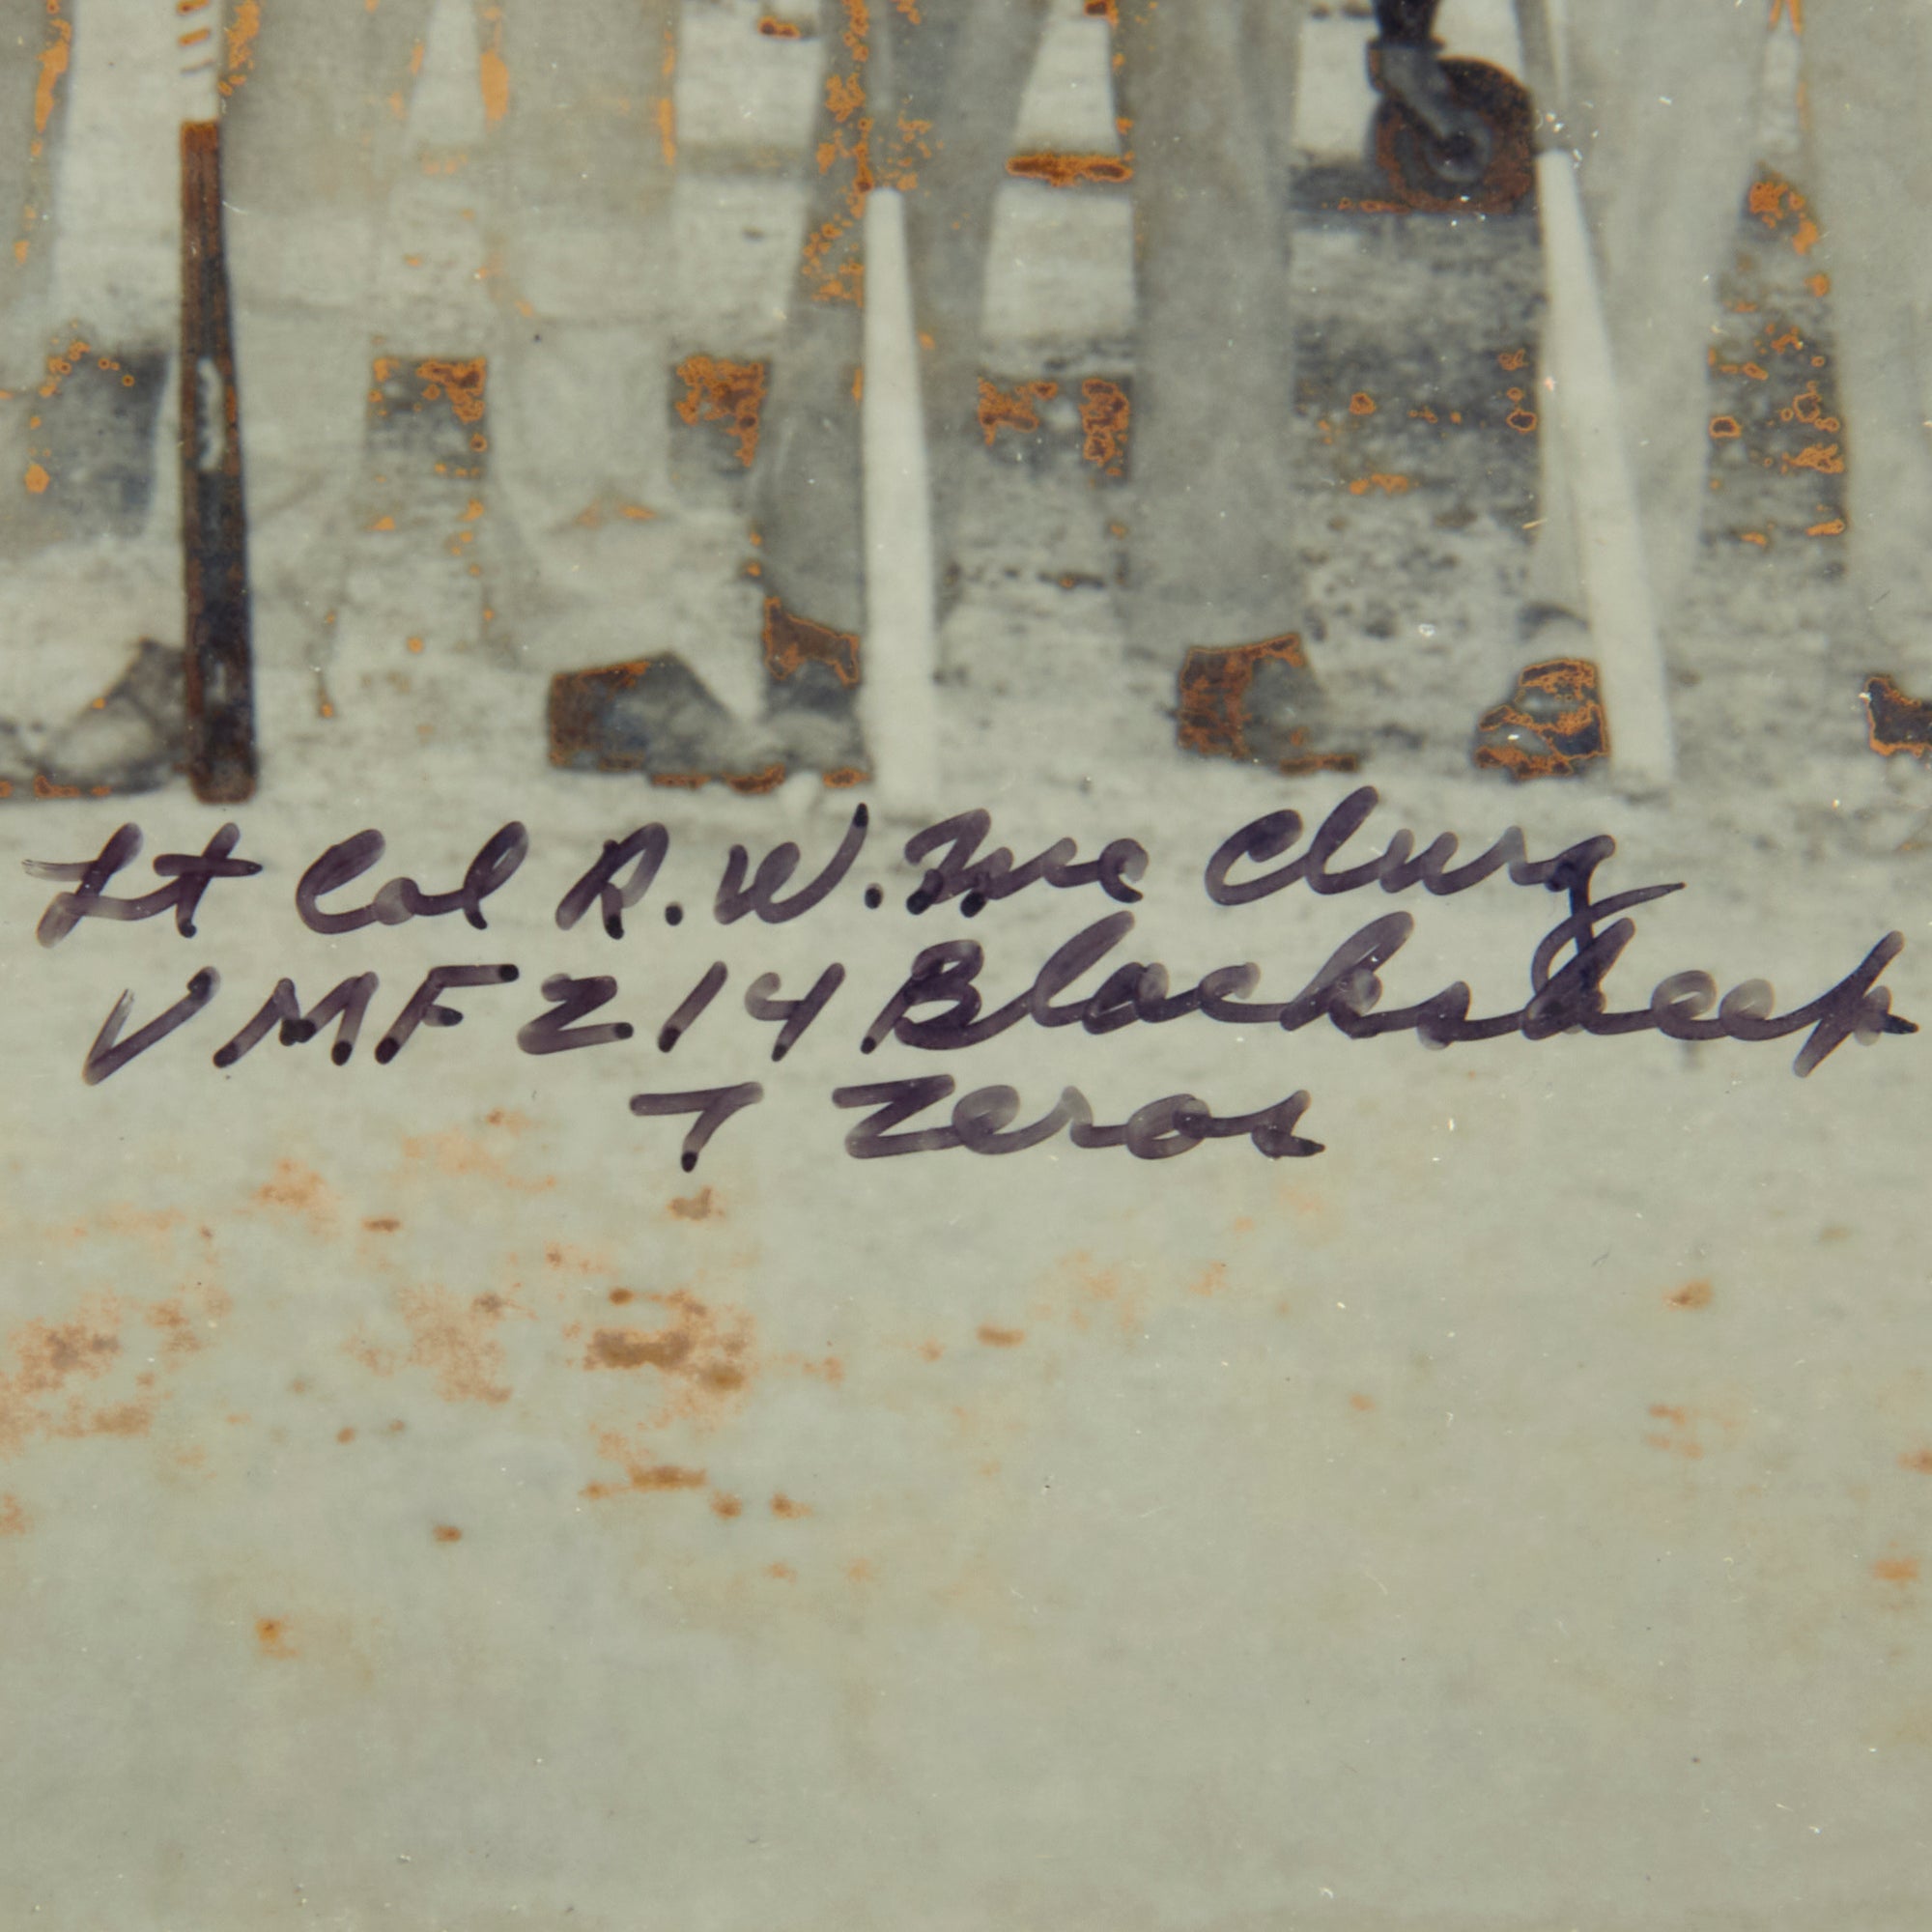 Lt Col R. W. Mc Clurg
VMF 214 Blacksheep
7 Zeros